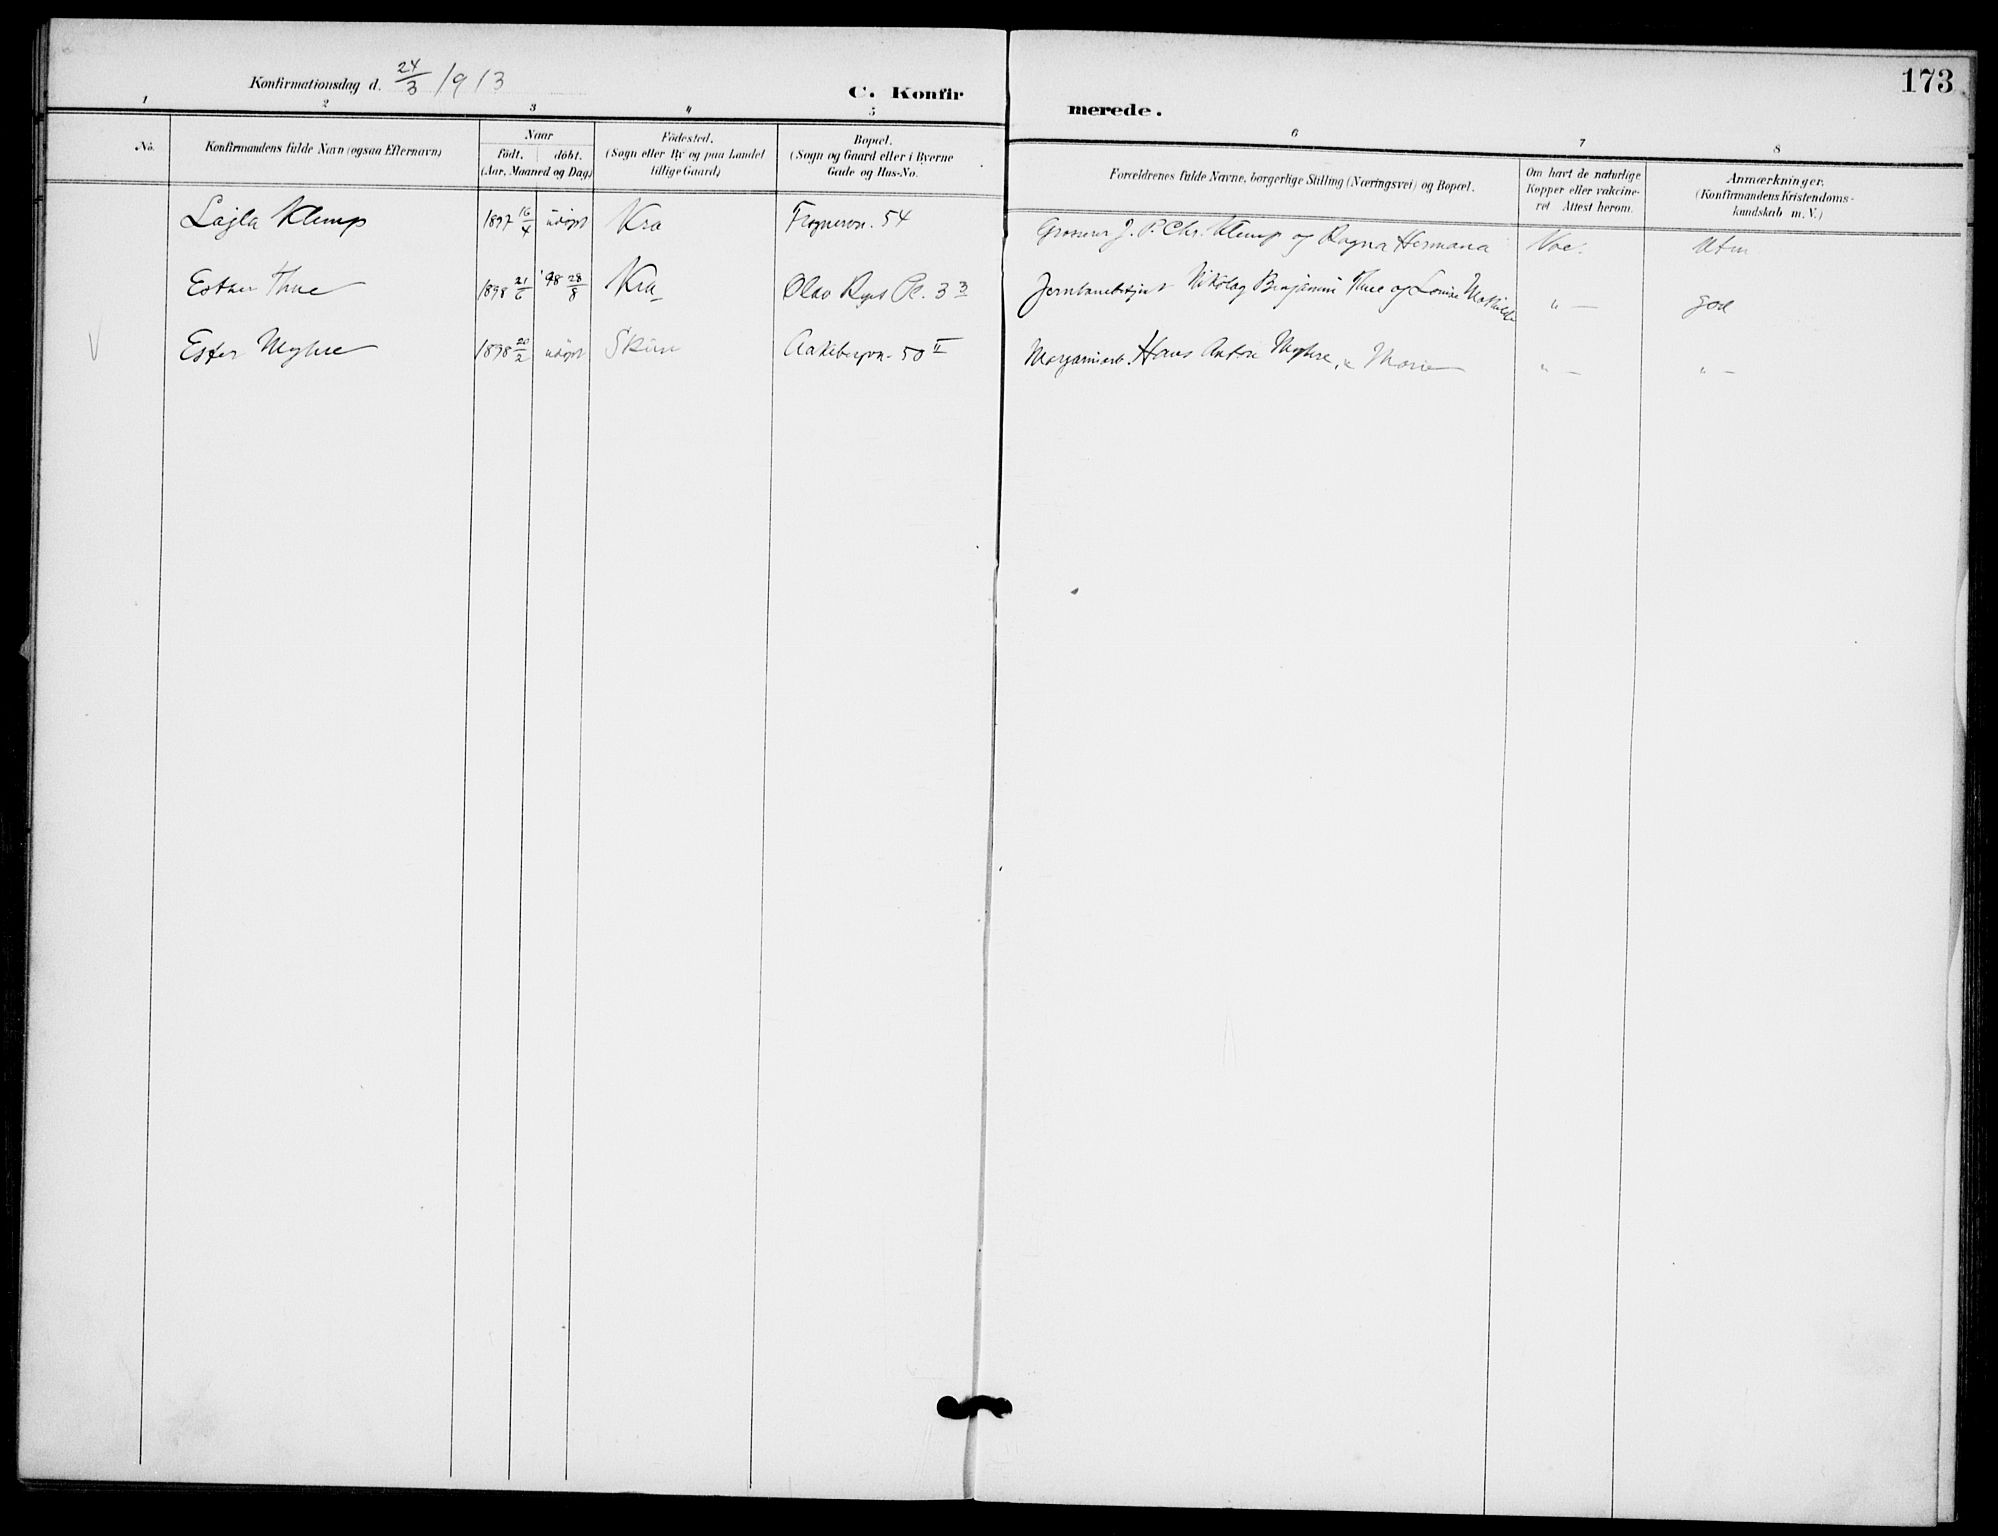 173
Konfirmationsdag d. 24/3 1913
C. Konfirmerede.
1 2 3 4 5 6 7 8
No.
Konfirmandens fulde Navn (ogsaa Efternavn)
Naar
født. døbt.
(Aar, Maaned og Dag)
Fødested.
(Sogn eller By og paa Landet
tillige Gaard)
Bopæl.
(Sogn og Gaard eller i Byerne
Gade og Hus-No.
Forældrenes fulde Navne, borgerlige Stilling (Næringsvei) og Bopæl.
Om havt de naturlige
Kopper eller vakcine-
ret Attest herom.
Anmærkninger.
(Konfirmandens Kristendoms-
kundskab m. V.)
Lajla Klemp 1897 16/4 udøpt Kra Frognervn. 54 J. P. Chr. Klemp og Ragna Hermana Vac. Utm
Esther Thue 1898 21/6 '98 28/8 Kra Olav Ryes Pl. 3 3 Nikolay Benjamin Thue og Louise Mathilde " — god
Ester Myhre 1898 20/2 udøpt 50 II Hans Anton Myhre, & Marie " — " —